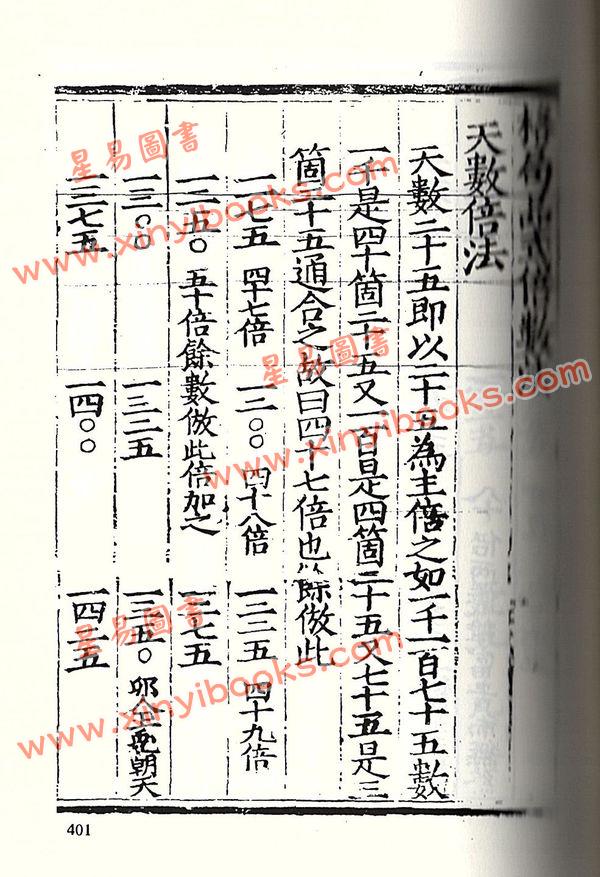 天數倍法
天數二十五即以二十五為主倍之如一千一百七十五數
一千是四十箇二十五又一百是四箇二十五又七十五是三
箇二十五通合之故曰四十七倍也餘倣此
一一七五 四十七倍 一二〇〇 四十八倍 一二二五 四十九倍
一二五〇 五十倍餘數倣此倍加之 一二七五
一三〇〇 一三二五 一三五〇 朝天
一三七五 一四〇〇 一四二五
401
星易圖書
www.xinyibooks.com
星易圖書
www.xinyibooks.com
星易圖書
www.xinyibooks.com